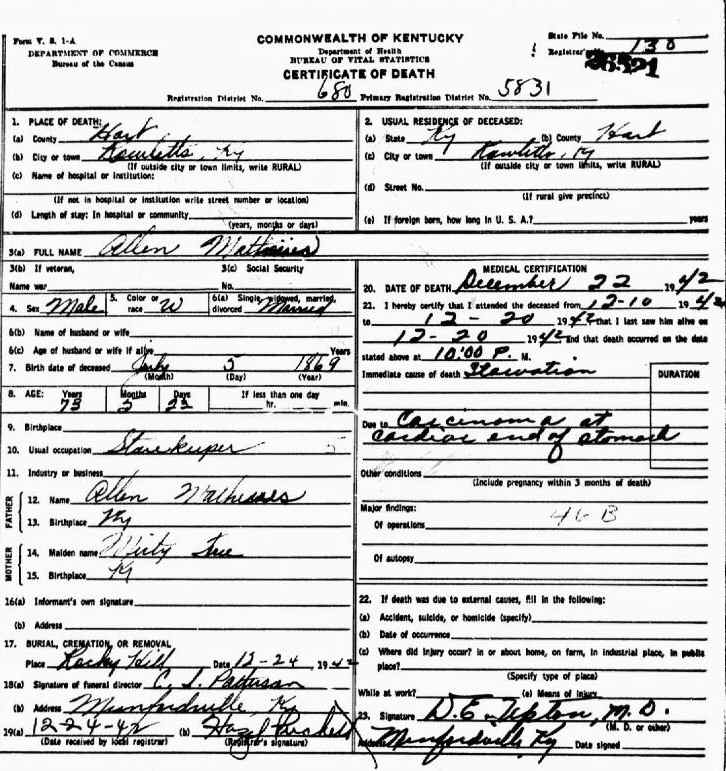 Form V. S. 1-A
DEPARTMENT OF COMMERCE
Bureau of the Census
COMMONWEALTH OF KENTUCKY
Department of Health
BUREAU OF VITAL STATISTICS
CERTIFICATE OF DEATH
State File No.
Registrar's No. 130
26521
Registration District No. 680 Primary Registration District No. 5831
1. PLACE OF DEATH:
(a) County Hart
(b) City or town Rowletts, Ky
(If outside city or town limits, write RURAL)
(c) Name of hospital or institution:
(If not in hospital or institution write street number or location)
(d) Length of stay: In hospital or community
(years, months or days)
2. USUAL RESIDENCE OF DECEASED:
(a) State Ky (b) County Hart
(c) City or town Rowletts, Ky
(If outside city or town limits, write RURAL)
(d) Street No.
(If rural give precinct)
(e) If foreign born, how long in U. S. A.? years
3(a) FULL NAME Allen
3(b) If veteran,
Name war
3(c) Social Security
No.
4. Sex Male 5. Color or race W 6(a) Single, widowed, married, divorced Married
6(b) Name of husband or wife
6(c) Age of husband or wife if alive Years
7. Birth date of deceased July 5 1869
(Month) (Day) (Year)
8. AGE: Years Months Days If less than one day
73 5 hr. min.
9. Birthplace
10. Usual occupation Storekeeper
11. Industry or business
FATHER
12. Name Allen
13. Birthplace Ky
MOTHER
14. Maiden name
15. Birthplace Ky
16(a) Informant's own signature
(b) Address
17. BURIAL, CREMATION, OR REMOVAL
Place Rocky Hill Date 12-24 1942
18(a) Signature of funeral director
(b) Address Munfordville, Ky
19(a) 12-24-42 (b) Hazel
(Date received by local registrar) (Registrar's signature)
MEDICAL CERTIFICATION
20. DATE OF DEATH December 22 1942
21. I hereby certify that I attended the deceased from 12-10 1942
to 12-20 1942 that I last saw him alive on
12-20 1942 and that death occurred on the date
stated above at 10:00 P. M.
Immediate cause of death Starvation
DURATION
Due to Carcinoma at
cardiac end of stomach
Other conditions
(Include pregnancy within 3 months of death)
Major findings:
Of operations 46 B
Of autopsy
22. If death was due to external causes, fill in the following:
(a) Accident, suicide, or homicide (specify)
(b) Date of occurrence
(c) Where did injury occur? in or about home, on farm, in industrial place, in public
place?
(Specify type of place)
While at work? (e) Means of injury
23. Signature D. E. Tipton, M. D.
(M. D. or other)
Address Munfordville, Ky Date signed